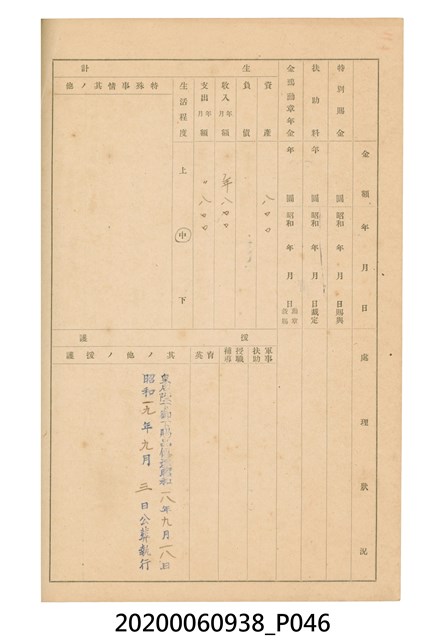 金額
年月日
處理狀況
特別賜金
圓
昭和 年 月 日賜與
扶助料
年 圓
昭和 年 月 日裁定
金鵄勳章年金
年 圓
昭和 年 月 日
生計
資產
八〇〇
負債
收入 年月額
年八〇〇
支出 年月額
〃八〇〇
生活程度
上 中 下
特殊事情其ノ他
援護
軍事扶助
授職補導
育英
其ノ他ノ援護
八年九月一八日
昭和一九年九月三日公葬執行
20200060938_P046